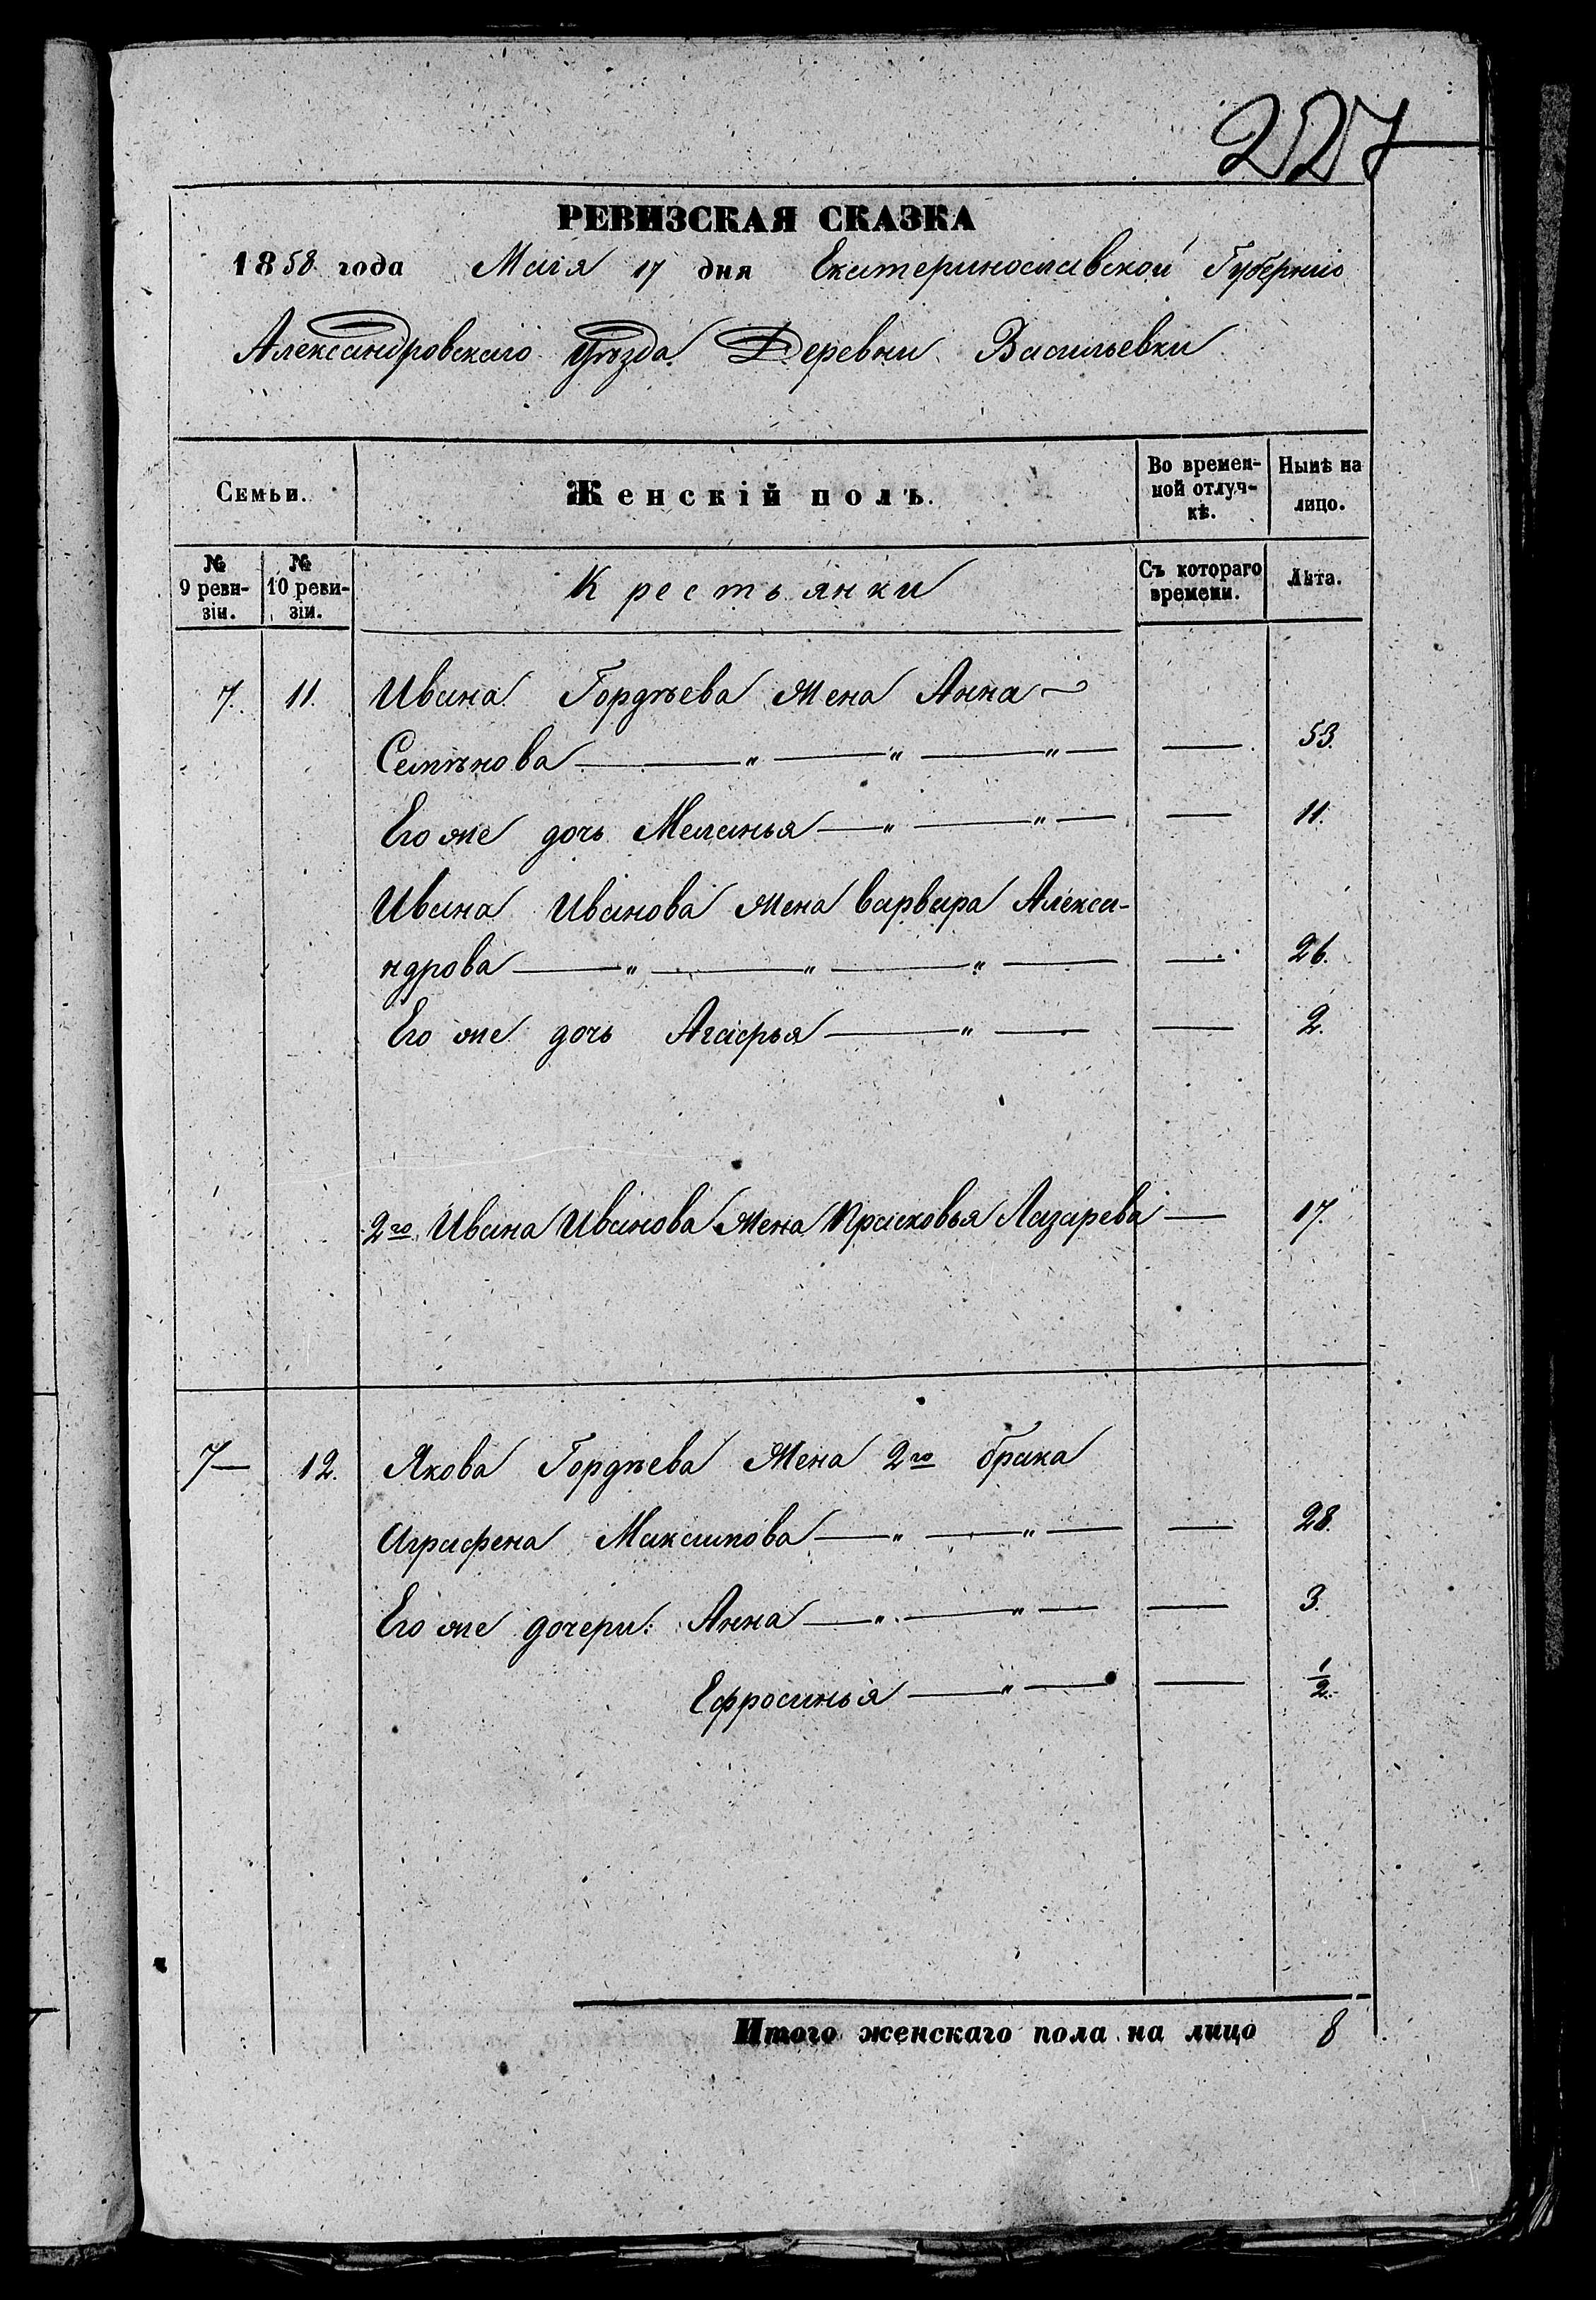 227
РЕВИЗСКАЯ СКАЗКА
1858 года Маія 17 дня Екатеринославской Губерніи
Александровскаго Уѣзда Деревни Васильевки
Семьи.
Женскій полъ.
Во времен-
ной отлуч-
кѣ.
Нынѣ на
лицо.
№
9 реви-
зіи.
№
10 реви-
зіи.
Крестьянки
Съ котораго
времени.
Лѣта.
7. 11. Ивана Гордѣева жена Анна
Семѣнова — „ — „ — „ — — 53.
Его же дочь Меланья — „ — „ — — 11.
Ивана Иванова жена Варвара Алекса-
ндрова — „ — „ — „ — — 26.
Его же дочь Агафья — „ — — 2.
2го Ивана Иванова жена Прасковья Лазарева — 17.
7 — 12. Якова Гордѣева жена 2го брака
Аграфена Максимова — „ — „ — — 28.
Его же дочери: Анна — „ — „ — — 3.
Ефросинья — „ — — 1/2.
Итого женскаго пола на лицо 8